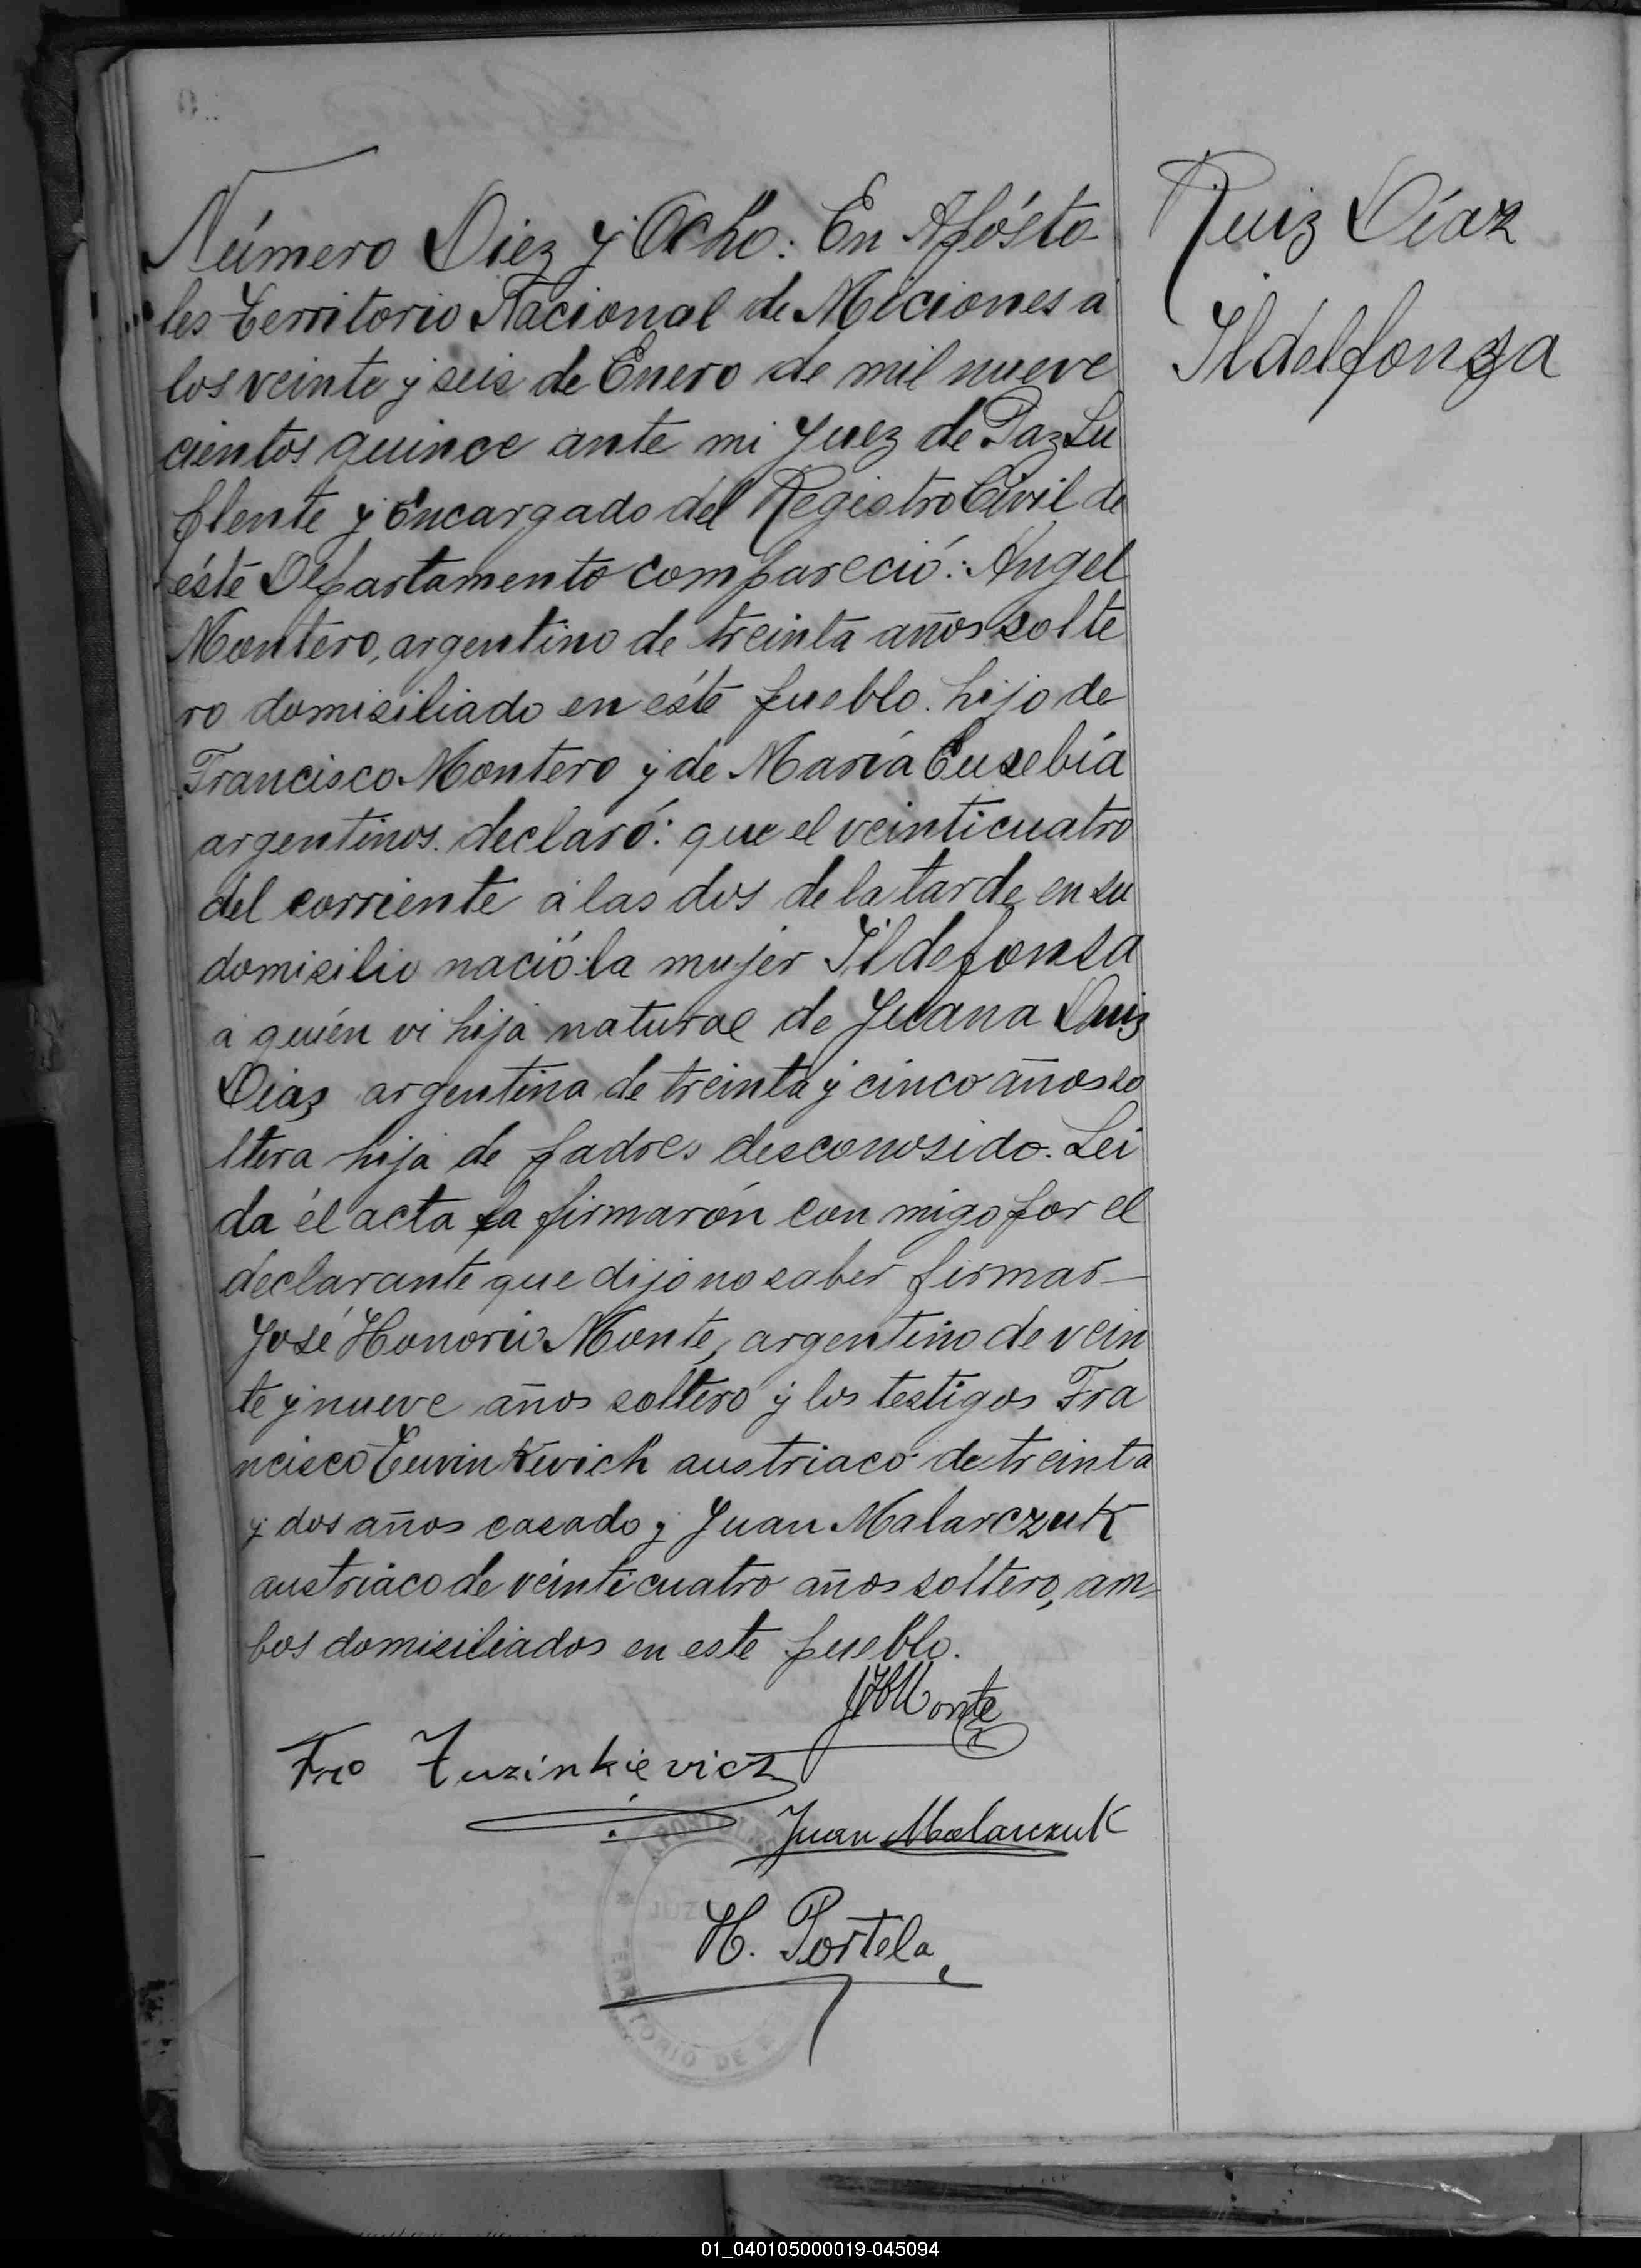 Número Diez y Ocho: En Apósto-
les Territorio Nacional de Miciones a
los veinte y seis de Enero de mil nueve
cientos quince ante mi Juez de Paz Su
plente y Encargado del Registro Civil de
éste Departamento compareció: Angel
Montero, argentino de treinta años solte
ro domisiliado en éste pueblo. hijo de
Francisco Montero y de María Eusebia
argentinos. declaró: que el veinticuatro
del corriente á las dos de la tarde en su
domisilio nació: la mujer Ildefonsa
a quién vi hija natural de Juana Ruiz
Dias argentina de treinta y cinco años so
ltera hija de padres desconosido. Lei
da él acta la firmarón con migo por el
declarante que dijo no saber firmar—
José Honorio Monte, argentino de vein
te y nueve años soltero y los testigos Fra
ncisco austriaco de treinta
y dos años casado y Juan Malarczuk
austriaco de veinticuatro años soltero, am-
bos domisiliados en este pueblo.
JHMonte
Fro Zuzinkievicz
Juan Malarczuk
H. Portela
APOSTOLES
JUZ
TERRITORIO DE
Ruiz Díaz
Ildelfonza
01_040105000019-045094